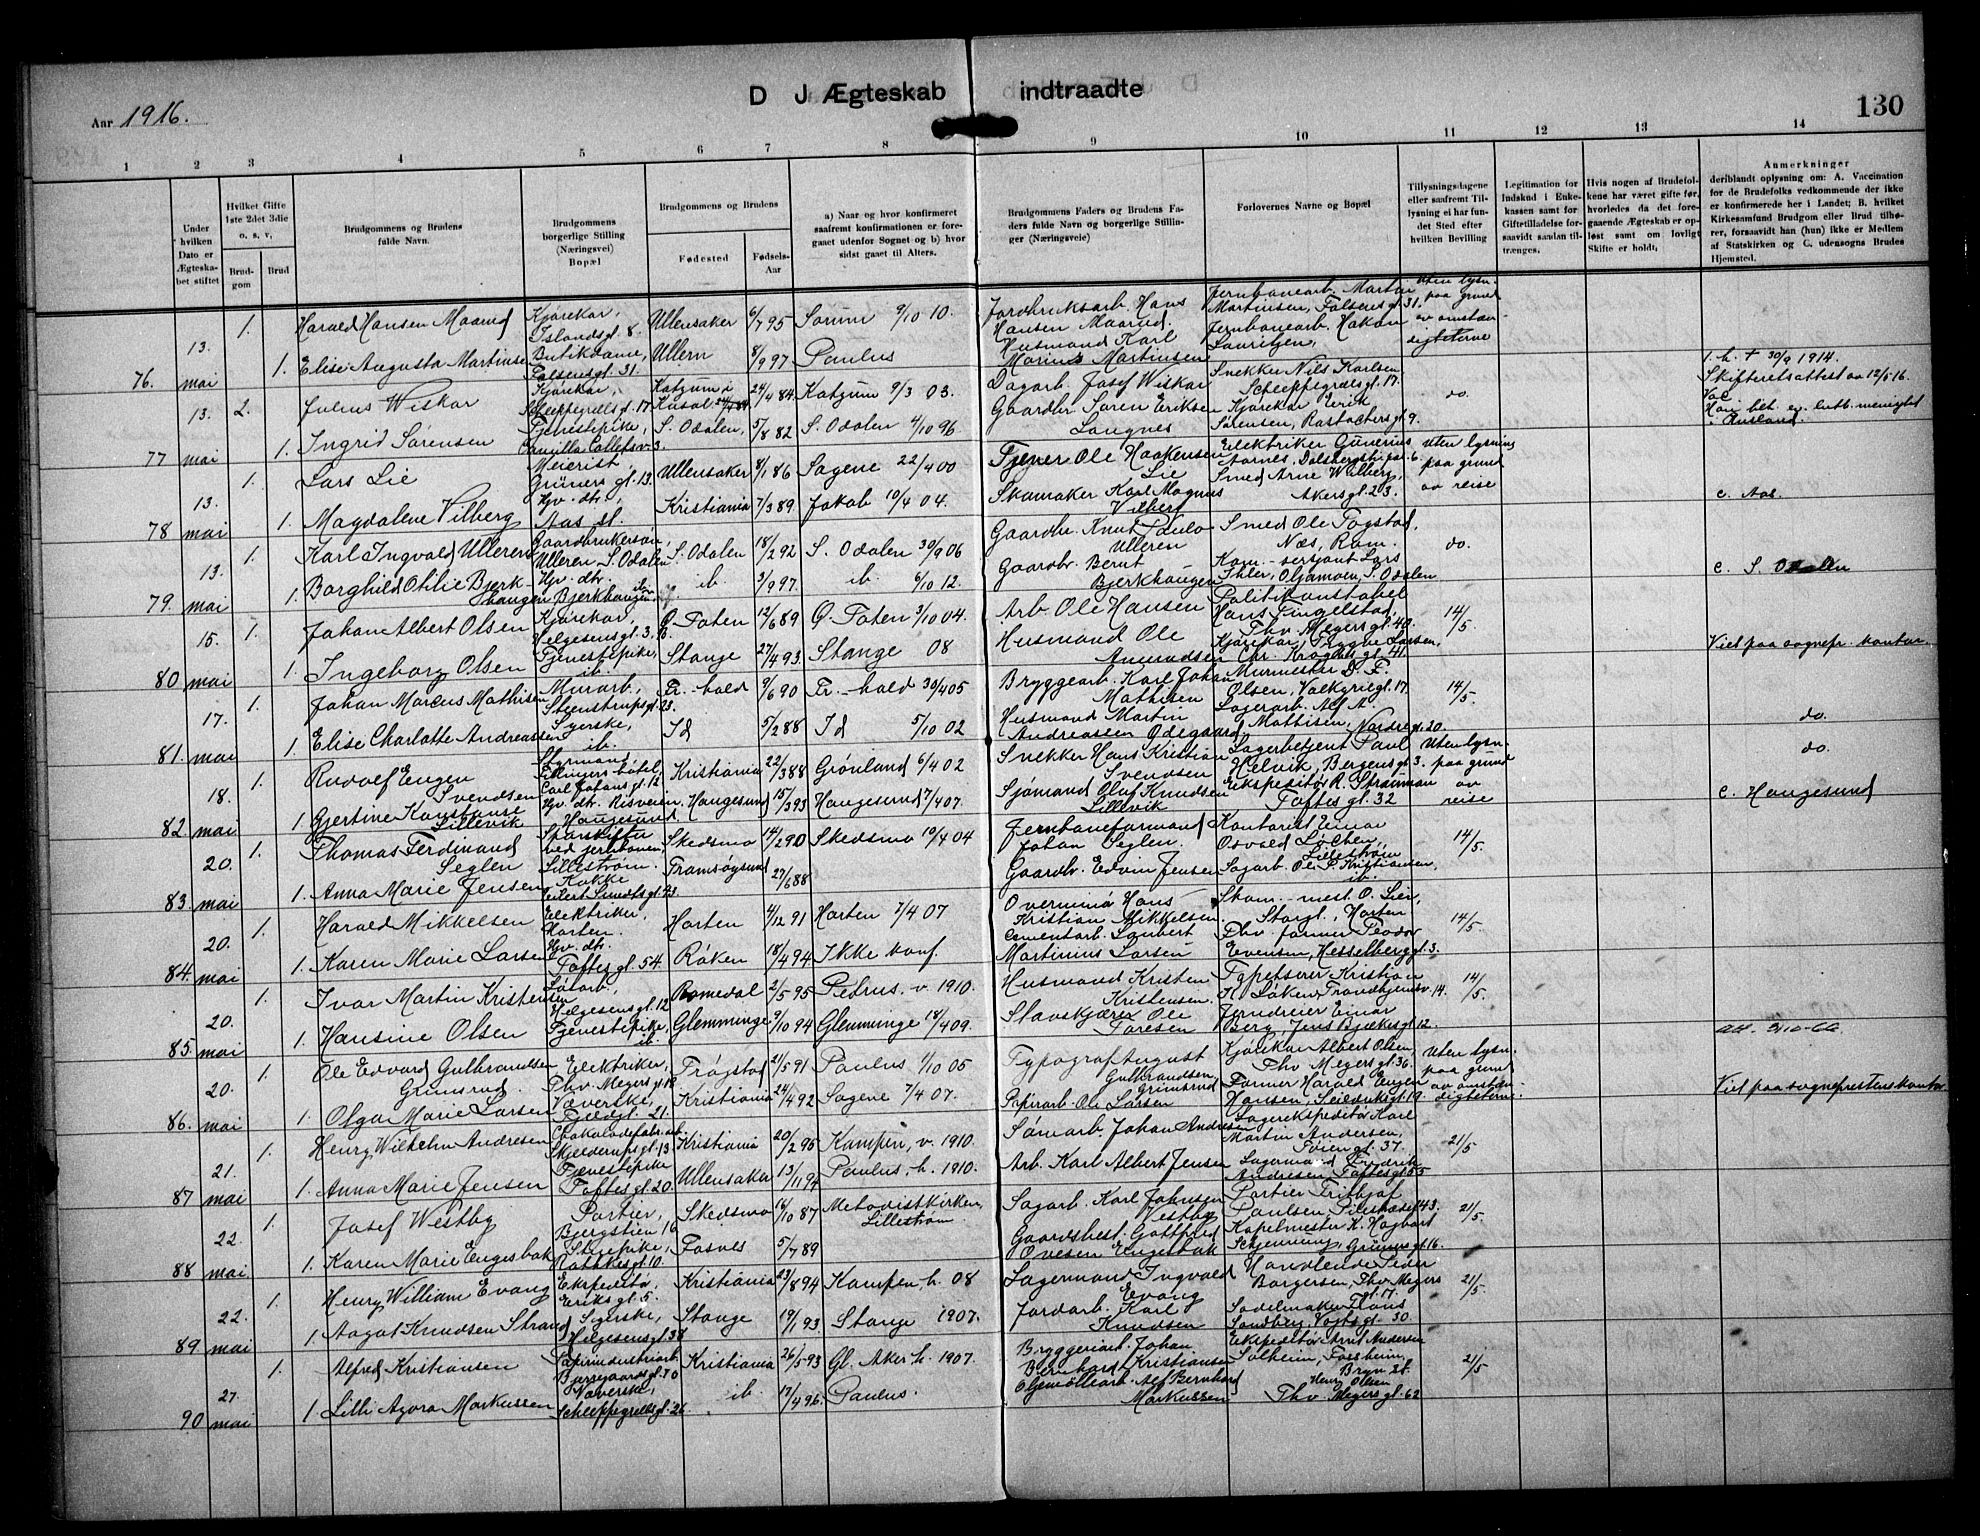 Aar 1916.
D J Ægteskab indtraadte
130
1 2 3 4 5 6 7 8 9 10 11 12 13 14
Under hvilken Dato er Ægteskabet stiftet
Hvilket Gifte 1ste 2det 3die o. s. v,
Brudgom
Brud
Brudgommens og Brudens fulde Navn.
Brudgommens borgerlige Stilling (Næringsvei) Bopæl
Brudgommens og Brudens
Fødested
Fødsels-Aar
a) Naar og hvor konfirmeret saafremt konfirmationen er foregaaet udenfor Sognet og b) hvor sidst gaaet til Alters.
Brudgommens Faders og Brudens Faders fulde Navn og borgerlige Stillinger (Næringsveie)
Forlovernes Navne og Bopæl
Tillysningsdagene eller saafremt Tillysning ei har fundet Sted efter hvilken Bevilling
Legitimation for Indskud i Enkekassen samt for Giftetilladelse forsaavidt saadan tiltrænges.
Hvis nogen af Brudefolkene har været gifte før, hvorledes da det foregaaende Ægteskab er opløst samt om lovligt Skifte er holdt,
Anmerkninger
deriblandt oplysning om: A. Vaccination for de Brudefolks vedkommende der ikke er konfirmerede her i Landet; B. hvilket Kirkesamfund Brudgom eller Brud tilhører, forsaavidt han (hun) ikke er Medlem af Statskirken og C. udensogns Brudes Hjemsted.
76. 13. mai 1. Harald Hansen Maarud Kjørekar, Islandsgt. 8. Ullensaker 6/7 95 Sørum 9/10 10. Jordbruksarb. Hans Hansen Maarud. Jernbanearb. Martin Martinsen, Falsensgt. 31. Uten lysn. paa grund av omstændigheterne
1. Elise Augusta Martinsen Butikdame, Falsensgt. 31. Ullern 8/9 97 Paulus Husmand Karl Marius Martinsen Jernbanearb. Hakon Lauritzen,
77 13. mai 2. Julius Wiskar Kjørekar, Schleppegrellsgt. 17 24/4 84 Katzum 9/3 03. Dagarb. Josef Wiskar Snekker Nils Karlsen Schleppegrellsgt. 17. do. 1. h. † 30/9 1914. Skifteretsattest av 12/5 16.
1. Ingrid Sørensen Tjenestepike, S. Odalen, 5/8 82 S. Odalen 4/10 96 Gaardbr. Søren Eriksen Langnes Kjørekar Erik Sørensen, Rastadtersgt. 9. Rusland.
78 13. mai 1. Lars Lie Meierist Grünersgt. 13. Ullensaker 8/1 86 Sagene 22/4 00 Tjener Ole Haakensen Lie Elektriker Gunerius Aarnes, Dalsbergstipa. 6. Uten lysning paa grund av reise
1. Magdalene Vilberg Hv. dtr, Aas st. Kristiania 7/3 89. Jakob 10/4 04. Skomaker Karl Magnus Vilberg Smed Arne Wilberg, Akersgt. 23. c. Aas.
79. 13. mai 1. Karl Ingvald Ulleren Gaardbrukersøn, Ulleren S. Odalen S. Odalen 18/2 92 S. Odalen 30/9 06 Gaardbr. Knut Paulo Ulleren Smed Ole Fogstad, Næs, Rom. do.
1. Borghild Otilie Bjerkhaugen Hv. dtr. Bjerkhaugen, ib. 3/9 97. ib. 6/10 12. Gaardbr. Bernt Bjerkhaugen Kom.-sersjant Lars Ihler, Oljamoen, S. Odalen c. S. Odalen
80 15. mai 1. Johan Albert Olsen Kjørekar, Helgesensgt. 3, Ø. Toten 12/6 89 Ø. Toten 3/10 04. Arb. Ole Hansen Politikonstabel Hans Fingelstad, Thv. Meyersgt. 40. 14/5.
1. Ingeborg Olsen Tjenestepike, ib. Stange 27/4 93. Stange 08 Husmand Ole Amundsen Kjørekar, Trygve Larsen, Chr. Kroghs gt. 41. Viet paa sognepr. kontor
81 17. mai 1. Johan Marcus Mathisen Murarb., Steenstrupsgt. 23. Fr.-hald 9/6 90 Fr.-hald 30/4 05 Bryggearb. Karl Johan Mathisen Murmester D. F. Olsen, Valkyriegt. 17. 14/5.
1. Elise Charlotte Andreassen Syerske, ib. Id 5/2 88 Id 5/10 02 Husmand Martin Andreassen Ødegaard Lagerarb. Alf A. Mathisen, Nordregt. 20. do.
82. 18. mai 1. Rudolf Engen Svendsen Styrmand, Carl Johansgt. 12 Kristiania 22/3 88 Grønland 6/4 02 Snekker Hans Kristian Svendsen Lagerbetjent Paul Helvik, Bergensgt. 3. Uten lysn. paa grund av reise do.
1. Gjertine Konstanse Lillevik Hv. dtr. Risveien, Haugesund Haugesund 15/3 93 Haugesund 7/4 07. Sjømand Oluf Knudsen Lillevik Ekspeditør R. Strømman Toftesgt. 32 c. Haugesund
83. 20. mai 1. Thomas Ferdinand Seglen Sporskifter ved jernbanen Lillestrøm. Skedsmo 14/2 90 Skedsmo 10/4 04 Jernbaneformand Johan Seglen. Kontorist Einar Odvald Løchen, Lillestrøm 14/5.
1. Anna Marie Jensen Kokke Eilert Sundtsgt. 23. Tromsøysund 27/6 88 Gaardbr. Edvin Jensen Sagarb. Ole P. Kristiansen, ib.
84. 20. mai 1. Harald Mikkelsen Elektriker, Horten. Horten 4/12 91 Horten 7/4 07 Overminør Hans Kristian Mikkelsen Skom.-mest. O. Lier, Storgt., Horten 14/5.
1. Karen Marie Larsen Hv. dtr. Toftesgt. 54. Røken 18/4 94 Ikke konf. Cementarb. Lambert Martinius Larsen Thv. former Teodor Evensen, Hesselberggt. 3.
85. 20. mai 1. Ivar Martin Kristensen Løtarb., Helgesensgt. 12 Romedal 2/5 95 Petrus. v. 1910. Husmand Kristen Kristensen. Tapetserer Kristian H. Løken, Trondhjemsv. 14. 14/5.
1. Hansine Olsen Tjenestepike, ib. Glemminge 9/10 94 Glemminge 18/4 09. Stavskjærer Ole Toresen Jerndreier Einar Berg, Jens Bjelkesgt. 12.
86. 20. mai 1. Ole Edvard Gulbrandsen Grimsrud. Elektriker, Thv. Meyersgt. 18 Trøgstad 21/5 91 Paulus 1/10 05 Typograf August Gulbrandsen Grimsrud Kjørekar Albert Olsen, Thv. Meyersgt. 36. Uten lysn. paa grund av omstændigheterne.
1. Olga Marie Larsen Væverske, Fjeldgt. 21. Kristiania 24/4 92 Sagene 7/4 07. Papirarb. Ole Larsen Former Harald Engen Hansen, Seildugsgt. 19. Viet paa sogneprestens kontor
87 21. mai 1. Henry Wilhelm Andresen Chokoladefabr.arb. Skjelderupsgt. 13 Kristiania 20/2 95 Kampen, v. 1910. Sømarb. Johan Andresen Lagerekspeditør Karl Martin Andersen, Tøiengt. 37. 21/5
1. Anna Marie Jensen Tjenestepike Toftesgt. 20. Ullensaker 13/11 94 Paulus, h. 1910. Arb. Karl Albert Jensen Lagermand Fredrik Andresen Toftesgt. 55
88 22. mai 1. Josef Westby Portier, Bergstien 16 Skedsmo 16/10 87 Metodistkirken, Lillestrøm Sagarb. Karl Johnsen Vestby Portier Fritjof Paulsen, Pilestrædet 43. 21/5
1. Karen Marie Engesbak Stuepike, Rathkesgt. 10. Fosnes 5/7 89 Gaardsbest. Gottfred Ovesen Engesbak Kapelmester H. Hagbart Schjenning, Grünersgt. 16.
89. 22. mai 1. Henry William Evang Ekspeditør, Eriksgt. 5. Kristiania 23/8 94 Kampen h. 08 Lagermand Ingvald Evang Handlende Peder Borgersen, Thv. Meyers gt. 17. 21/5
1 Aagot Knudsen Strand Syerske, Helgesensgt. 38 Stange 19/1 93 Stange 1907. Jordarb. Karl Knudsen Sadelmaker Hans Sandberg, Vogtsgt. 30.
90 27. mai 1. Alfred Kristiansen Papirindustriarb. Bjerregaardsgt. 30 Kristiania 26/5 93 Gl. Aker h. 1907. Bryggeriarb. Johan Bernhard Kristiansen Ekspeditør Arnt Andersen Solheim, Forsheim, Bryn st. 21/5
1 Lilli Agora Markussen Væverske, Schleppegrellsgt. 26 ib. 17/4 96. Paulus. Oljemøllearb. Alf Bernhard Markussen Henry Olsen Thv. Meyersgt. 62